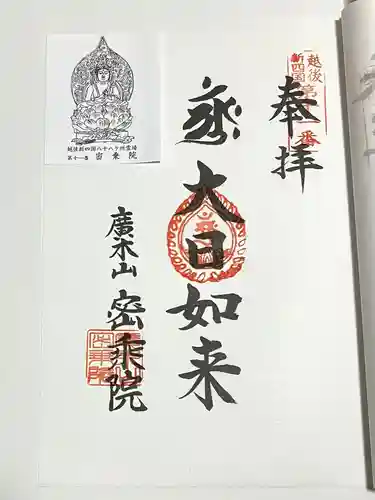 越後
新四国
第十一番
奉拝
大日如来
廣木山
密乗院
越後新四国八十八ヶ所霊場
第十一番 密乗院